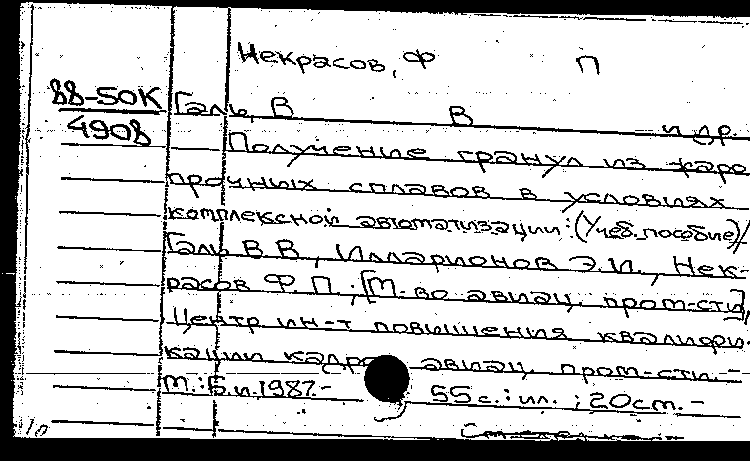 Некрасов, Ф П
88-50К
4908
Галь, В В и др.
Получение гранул из жаро
прочных сплавов в условиях
комплексной автоматизации: (Учеб. пособие)/
Галь В. В., Илларионов Э. И., Нек-
расов Ф. П.; [М-во авиац. пром-сти],
Центр ин-т повышения квалифи-
кации кадров авиац. пром-сти.-
М.: Б. и. 1987.- 55 с.: ил.; 20 см. -